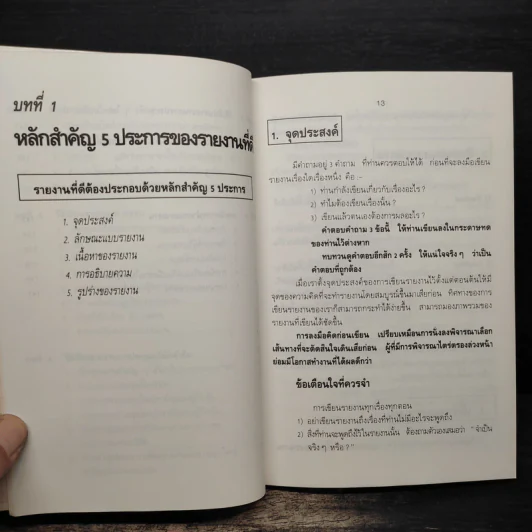 บทที่ 1
หลักสำคัญ 5 ประการของรายงานที่ดี
รายงานที่ดีต้องประกอบด้วยหลักสำคัญ 5 ประการ
1. จุดประสงค์
2. ลักษณะแบบรายงาน
3. เนื้อหาของรายงาน
4. การอธิบายความ
5. รูปร่างของรายงาน
13
1. จุดประสงค์
มีคำถามอยู่ 3 คำถาม ที่ท่านควรตอบให้ได้ ก่อนที่จะลงมือเขียน
รายงานเรื่องใดเรื่องหนึ่ง คือ :-
1) ท่านกำลังเขียนเกี่ยวกับเรื่องอะไร ?
2) ทำไมต้องเขียนเรื่องนั้น ?
3) เขียนแล้วตนเองต้องการผลอะไร ?
คำตอบคำถาม 3 ข้อนี้ ให้ท่านเขียนลงในกระดาษทด
ของท่านไว้ต่างหาก
ทบทวนดูคำตอบอีกสัก 2 ครั้ง ให้แน่ใจจริง ๆ ว่าเป็น
คำตอบที่ถูกต้อง
เมื่อเราตั้งจุดประสงค์ของการเขียนรายงานไว้ตั้งแต่ตอนต้นให้มี
จุดของความคิดที่จะทำรายงานโดยสมบูรณ์ขึ้นมาเสียก่อน ทิศทางของการ
เขียนรายงานของเราก็สามารถกระทำได้ง่ายขึ้น สามารถมองภาพรวมของ
รายงานที่เขียนได้ชัดขึ้น
การลงมือคิดก่อนเขียน เปรียบเหมือนการนั่งลงพิจารณาเลือก
เส้นทางที่จะตัดสินใจเดินเสียก่อน ผู้ที่มีการพิจารณาไตร่ตรองล่วงหน้า
ย่อมมีโอกาสทำงานที่ได้ผลดีกว่า
ข้อเตือนใจที่ควรจำ
การเขียนรายงานทุกเรื่องทุกตอน
1) อย่าเขียนรายงานถึงเรื่องที่ท่านไม่มีอะไรจะพูดถึง
2) สิ่งที่ท่านจะพูดถึงไว้ในรายงานนั้น ต้องถามตัวเองเสมอว่า "จำเป็น
จริง ๆ หรือ ?"